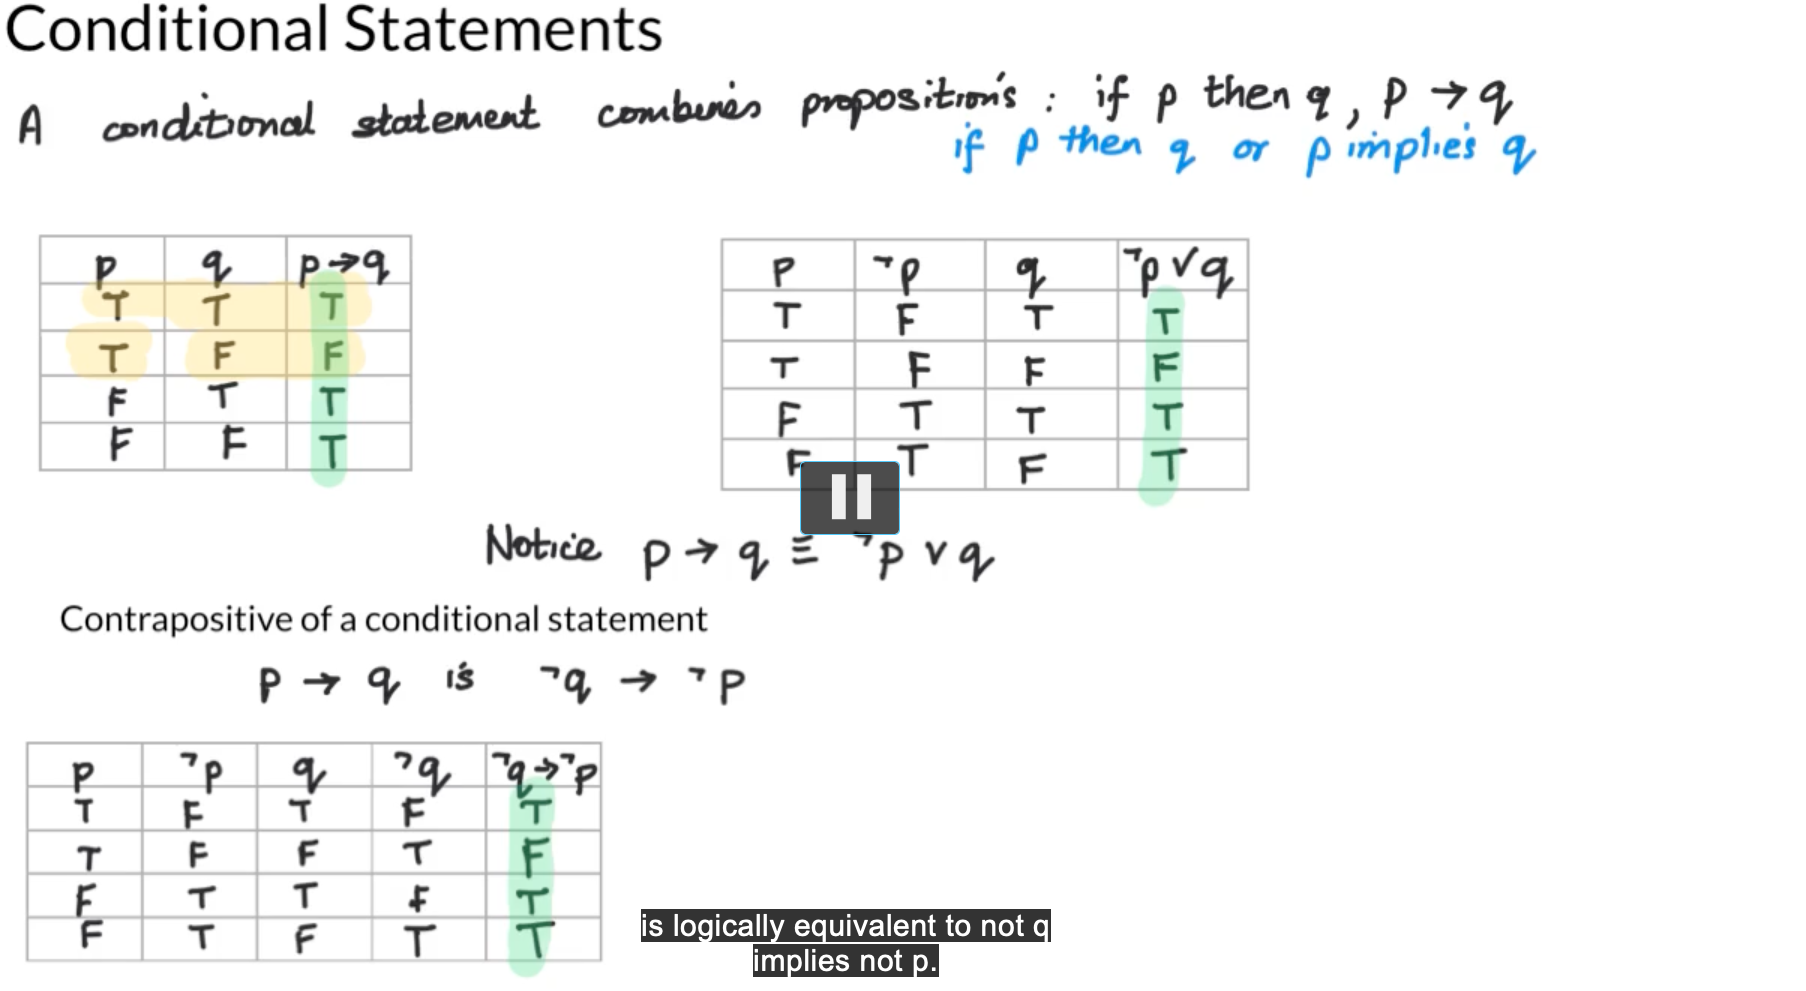 Conditional Statements
A conditional statement combines propositions : if p then q, p → q
if p then q or p implies q
p q p→q
T T T
T F F
F T T
F F T
p ¬p q ¬p ∨ q
T F T T
T F F F
F T T T
F T F T
Notice p → q ≡ ¬p ∨ q
Contrapositive of a conditional statement
p → q is ¬q → ¬p
p ¬p q ¬q ¬q→¬p
T F T F T
T F F T F
F T T F T
F T F T T
is logically equivalent to not q
implies not p.